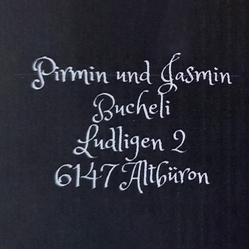 Pirmin und Jasmin
Bucheli
Ludligen 2
6147 Altbüron